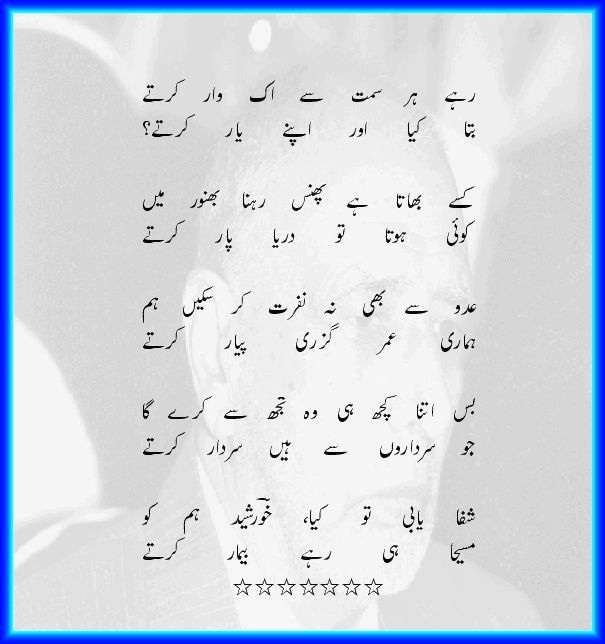 رہے ہر سمت سے اک وار کرتے
بتا کیا اور اپنے یار کرتے؟
کسے بھاتا ہے پھنس رہنا بھنور میں
کوئی ہوتا تو دریا پار کرتے
عدو سے بھی نہ نفرت کر سکیں ہم
ہماری عمر گزری پیار کرتے
بس اتنا کچھ ہی وہ تجھ سے کرے گا
جو سرداروں سے ہیں سردار کرتے
شفا یابی تو کیا، خورؔشید ہم کو
مسیحا ہی رہے بیمار کرتے
☆☆☆☆☆☆☆